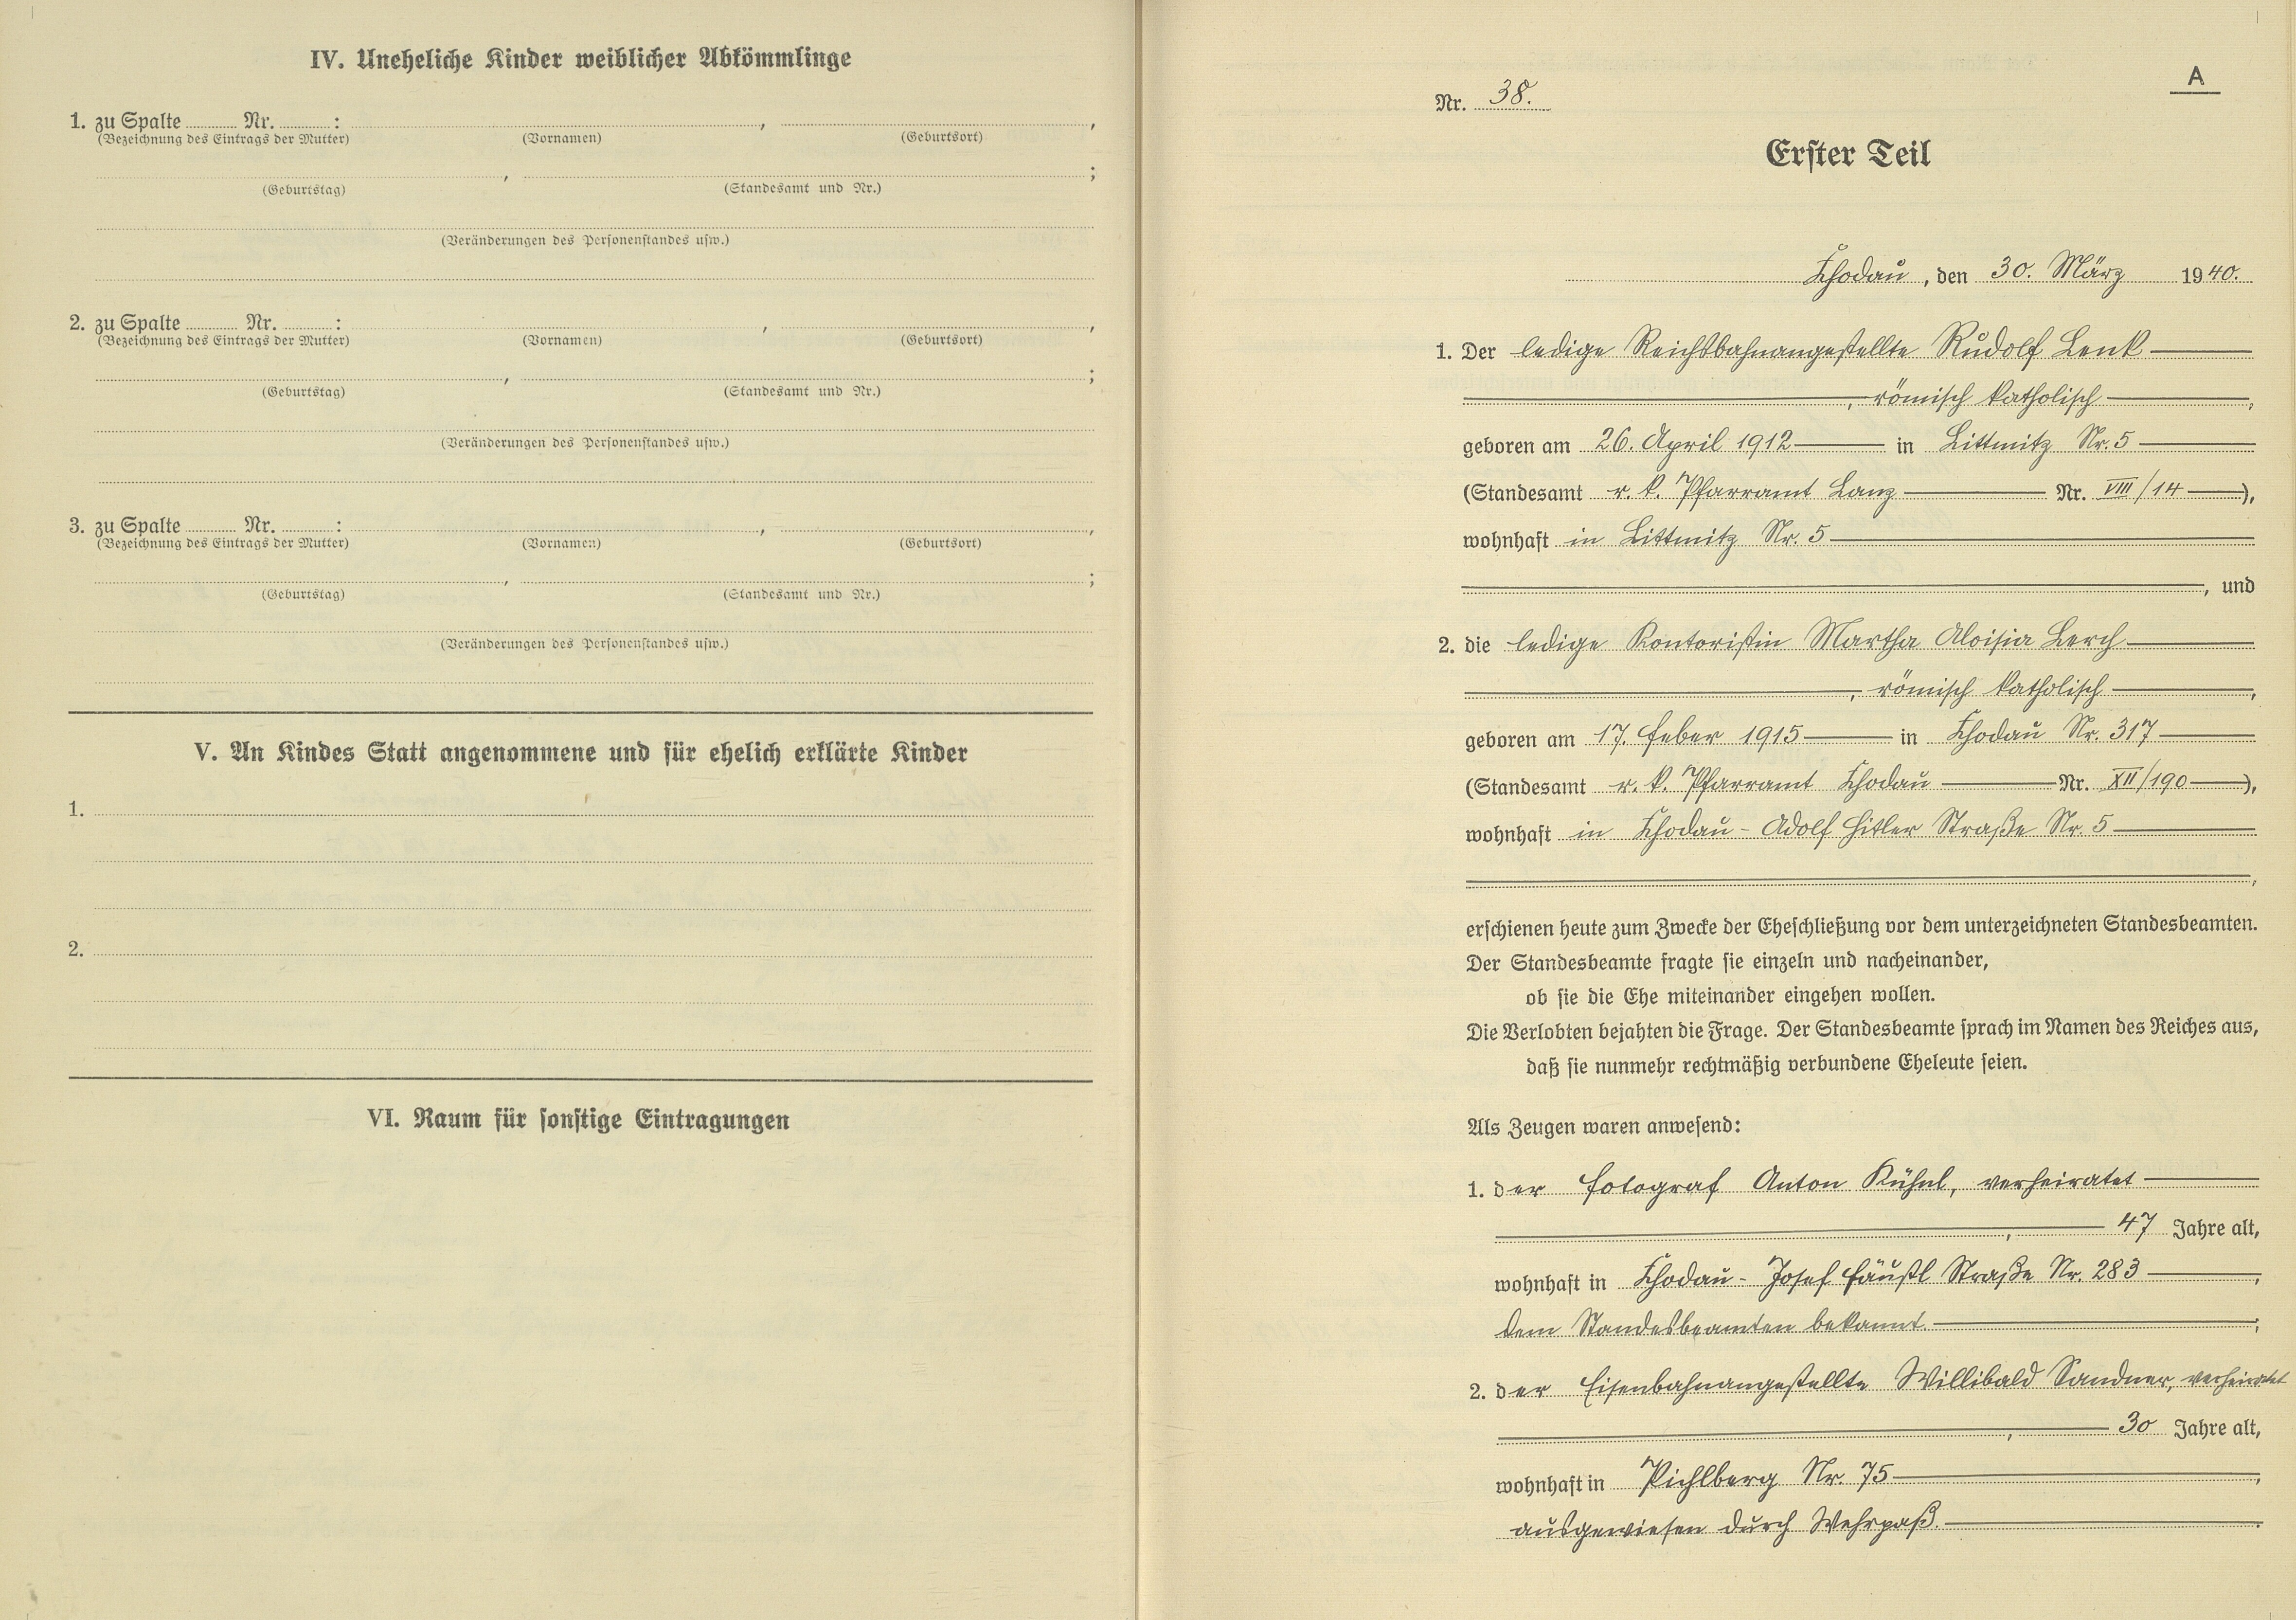 IV. Uneheliche Kinder weiblicher Abkömmlinge
1. zu Spalte ........ Nr. ........ : ........ , ........ ,
(Bezeichnung des Eintrags der Mutter) (Vornamen) (Geburtsort)
........ , ........ ;
(Geburtstag) (Standesamt und Nr.)
(Veränderungen des Personenstandes usw.)
2. zu Spalte ........ Nr. ........ : ........ , ........ ,
(Bezeichnung des Eintrags der Mutter) (Vornamen) (Geburtsort)
........ , ........ ;
(Geburtstag) (Standesamt und Nr.)
(Veränderungen des Personenstandes usw.)
3. zu Spalte ........ Nr. ........ : ........ , ........ ,
(Bezeichnung des Eintrags der Mutter) (Vornamen) (Geburtsort)
........ , ........ ;
(Geburtstag) (Standesamt und Nr.)
(Veränderungen des Personenstandes usw.)
V. An Kindes Statt angenommene und für ehelich erklärte Kinder
1.
2.
VI. Raum für sonstige Eintragungen
A
Nr. 38.
Erster Teil
Chodau, den 30. März 1940.
1. Der ledige Reichsbahnangestellte Rudolf Lenk
, römisch katholisch ,
geboren am 26. April 1912 in Littmitz Nr. 5
(Standesamt r. k. Pfarramt Lanz Nr. VIII/14 ),
wohnhaft in Littmitz Nr. 5
, und
2. die ledige Kontoristin Martha Aloisia Lerch
, römisch katholisch ,
geboren am 17. Feber 1915 in Chodau Nr. 317
(Standesamt r. k. Pfarramt Chodau Nr. XII/190 ),
wohnhaft in Chodau - Adolf Hitler Straße Nr. 5
,
erschienen heute zum Zwecke der Eheschließung vor dem unterzeichneten Standesbeamten.
Der Standesbeamte fragte sie einzeln und nacheinander,
ob sie die Ehe miteinander eingehen wollen.
Die Verlobten bejahten die Frage. Der Standesbeamte sprach im Namen des Reiches aus,
daß sie nunmehr rechtmäßig verbundene Eheleute seien.
Als Zeugen waren anwesend:
1. der Fotograf Anton Kühnl, verheiratet
, 47 Jahre alt,
wohnhaft in Chodau - Josef Fäustl Straße Nr. 283 ,
dem Standesbeamten bekannt ;
2. der Eisenbahnangestellte Willibald Sandner, verheiratet
, 30 Jahre alt,
wohnhaft in Pichlberg Nr. 75 ,
ausgewiesen durch Wehrpaß.